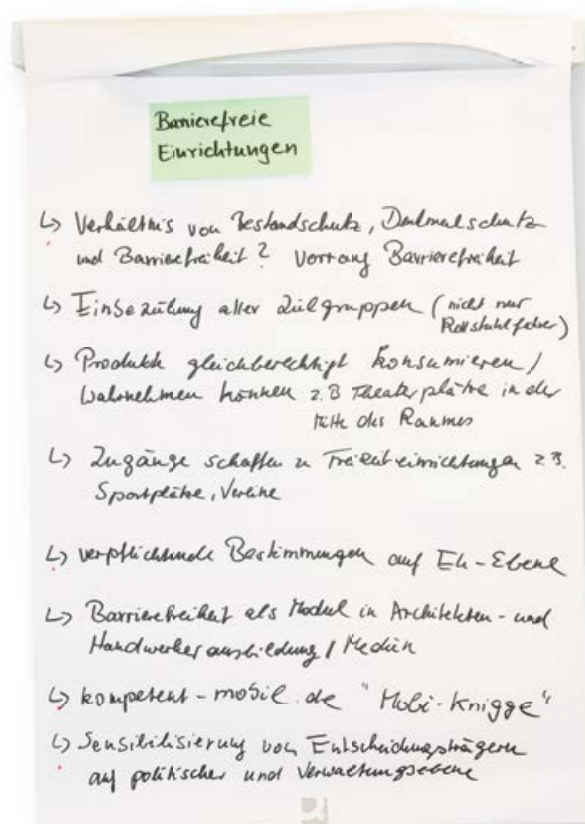 Barrierefreie
Einrichtungen
↳ Verhältnis von Bestandschutz, Denkmalschutz
und Barrierefreiheit? Vorrang Barrierefreiheit
↳ Einbeziehung aller Zielgruppen (nicht nur
Rollstuhlfahrer)
↳ Produkte gleichberechtigt konsumieren /
wahrnehmen können z.B Theaterplätze in der
Mitte des Raumes
↳ Zugänge schaffen zu Freizeiteinrichtungen z.B.
Sportplätze, Vereine
↳ verpflichtende Bestimmungen auf EU-Ebene
↳ Barrierefreiheit als Modul in Architekten- und
Handwerkerausbildung / Medien
↳ kompetent-mobil.de "Mobi-Knigge"
↳ Sensibilisierung von Entscheidungsträgern
auf politischer und Verwaltungsebene